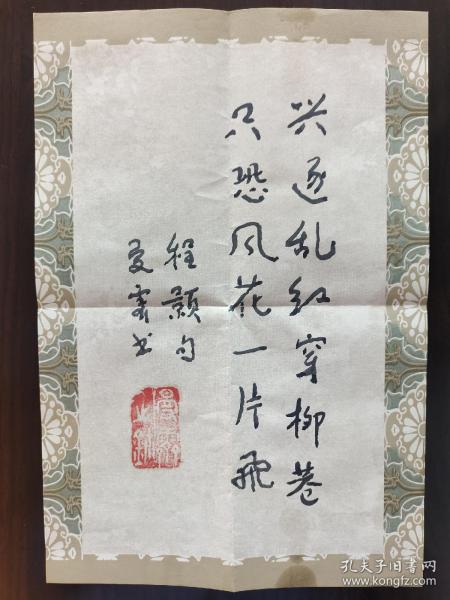 兴逐乱红穿柳巷
只恐风花一片飞
程颢句
书
孔夫子旧书网
www.kongfz.com